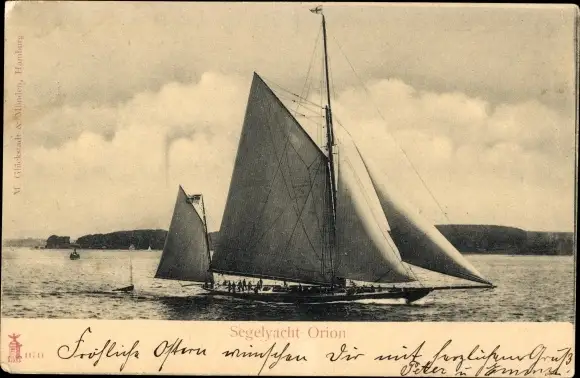 M. Glückstadt & Münden, Hamburg.
Segelyacht Orion
11511
Fröhliche Ostern wünschen Dir mit herzlichem Gruß
Peter u.